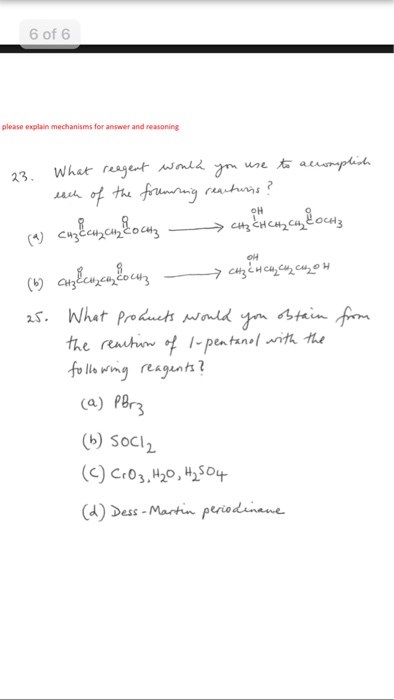 6 of 6
please explain mechanisms for answer and reasoning
23. What reagent would you use to accomplish
each of the following reactions?
(a) CH3CCH2CH2COCH3 → CH3CHCH2CH2COCH3
O O OH O
(b) CH3CCH2CH2COCH3 → CH3CHCH2CH2CH2OH
O O OH
25. What products would you obtain from
the reaction of 1-pentanol with the
following reagents?
(a) PBr3
(b) SOCl2
(c) CrO3, H2O, H2SO4
(d) Dess-Martin periodinane